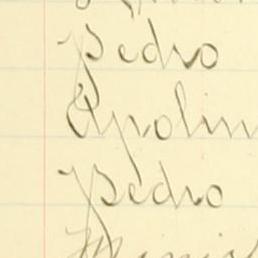 Pedro
Apolin
Pedro